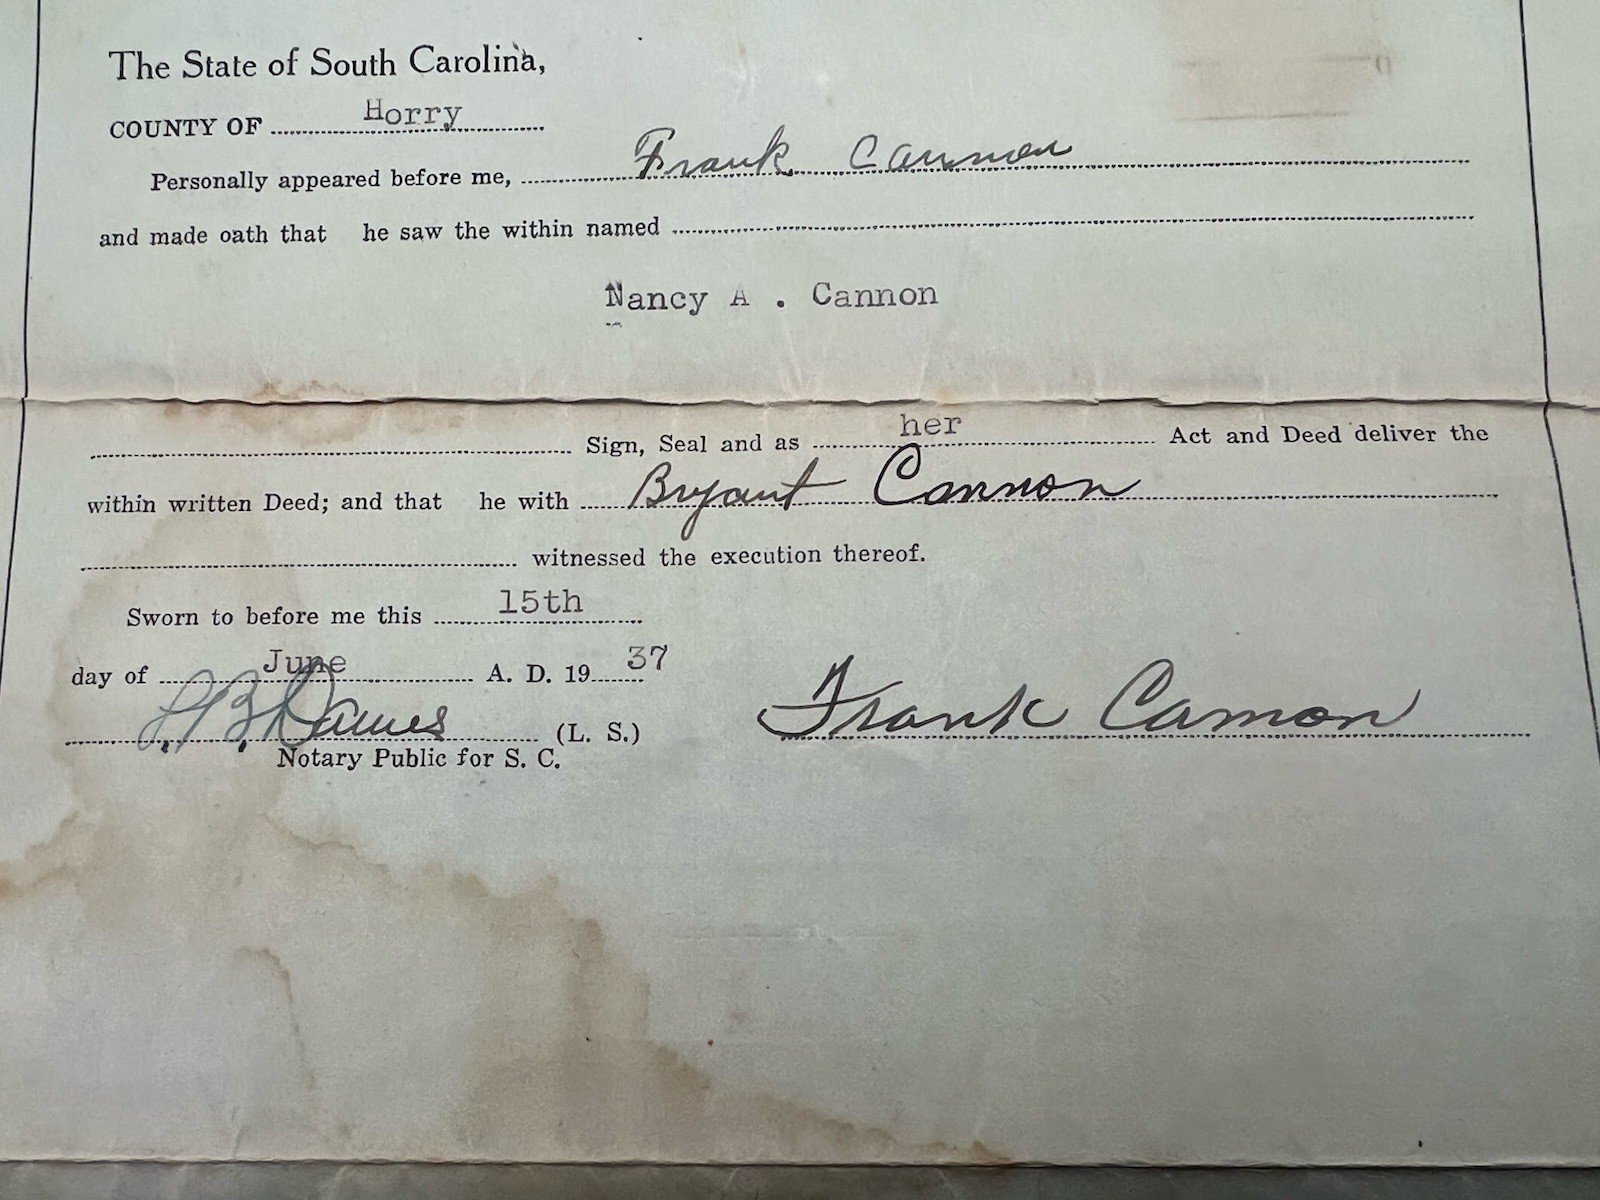 The State of South Carolina,
COUNTY OF Horry
Personally appeared before me, Frank Cannon
and made oath that he saw the within named
Nancy A . Cannon
Sign, Seal and as her Act and Deed deliver the
within written Deed; and that he with Bryant Cannon
witnessed the execution thereof.
Sworn to before me this 15th
day of June A. D. 19 37
Frank Cannon
(L. S.)
Notary Public for S. C.